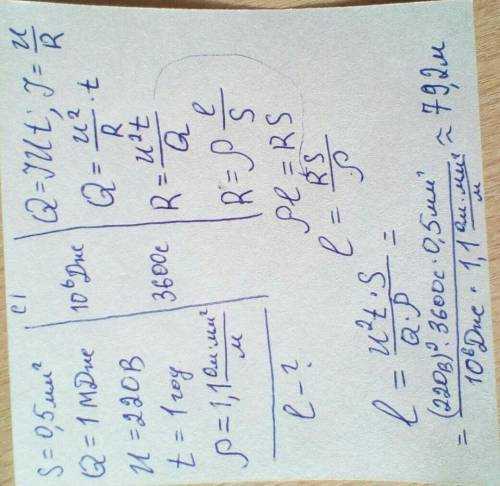 S=0,5 мм²
Q=1 МДж
U=220В
t=1 год
ρ=1,1 Ом·мм²/м
l-?
СІ
10⁶Дж
3600с
Q=IUt; I=U/R
Q=U²/R · t
R=U²t/Q
R=ρ l/S
ρl=RS
l=RS/ρ
l = U²t·S/Q·ρ =
= (220В)²·3600с·0,5мм²/10⁶Дж · 1,1 Ом·мм²/м ≈ 79,2м